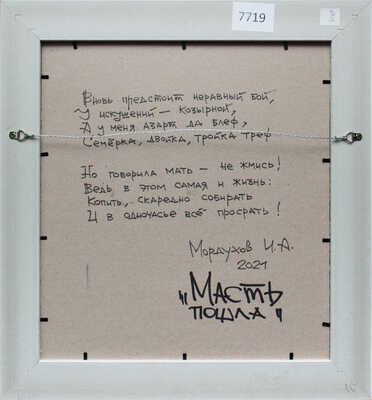 7719
Вновь предстоит неравный бой,
У искушений – козырной,
А у меня азарт да блеф,
Семёрка, двойка, тройка треф
Но говорила мать – не жмись!
Ведь в этом самая и жизнь:
Копить, скаредно собирать
И в одночасье всё просрать!
Мордухов И.А.
2021
"Масть
пошла"